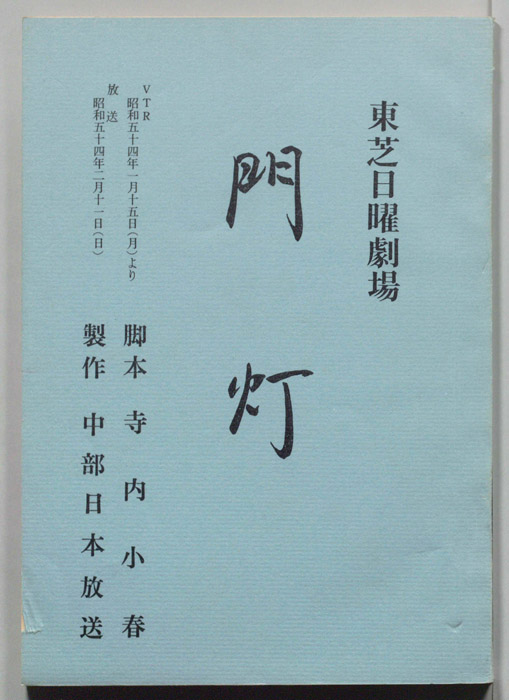 東芝日曜劇場
門灯
VTR 昭和五十四年一月十五日(月)より
放送 昭和五十四年二月十一日(日)
脚本 寺内小春
製作 中部日本放送